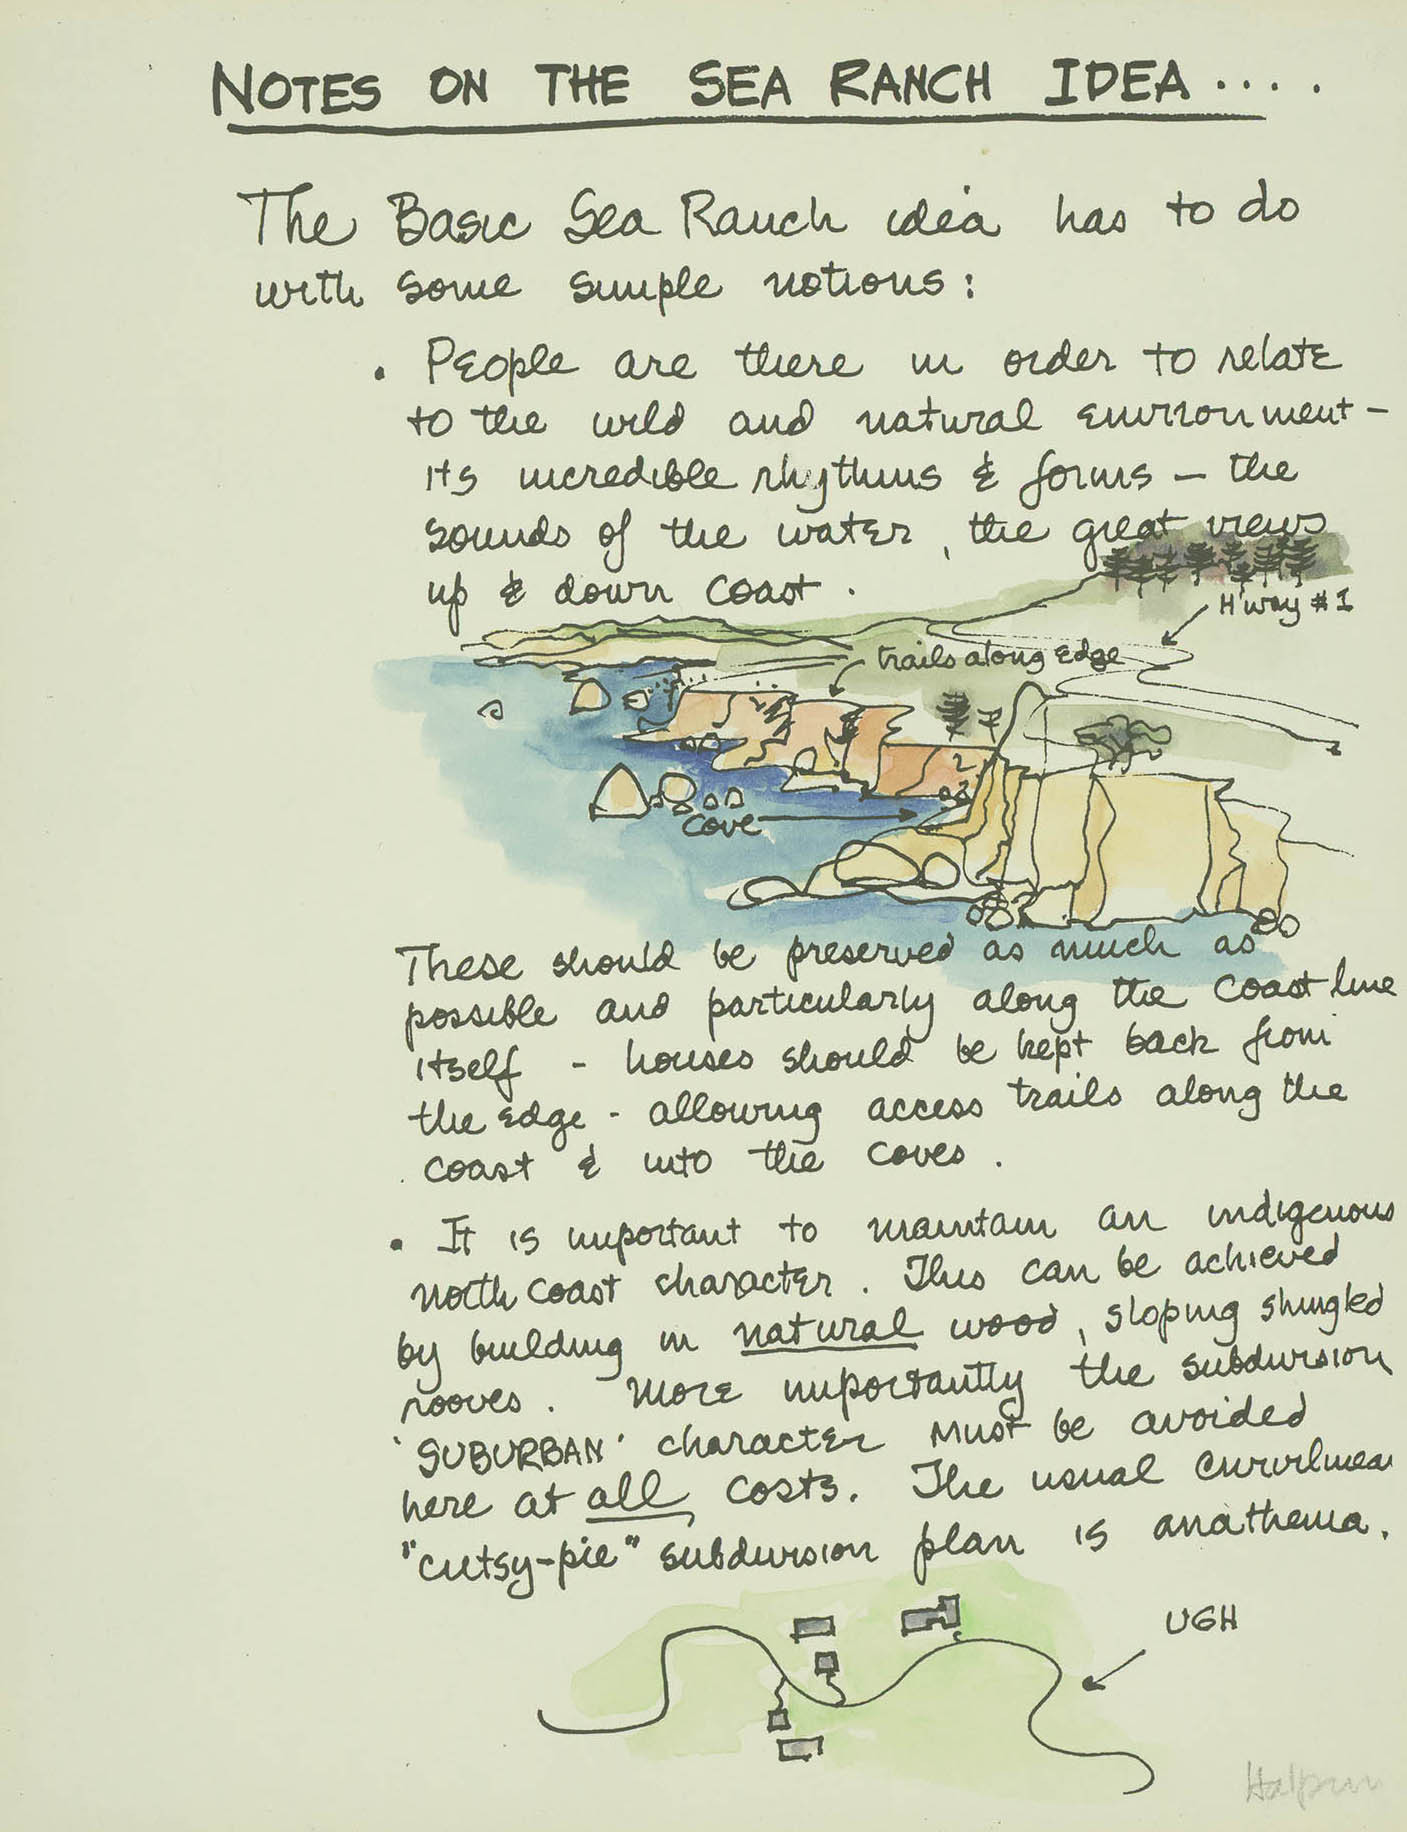 NOTES ON THE SEA RANCH IDEA....
The Basic Sea Ranch idea has to do
with some simple notions:
• People are there in order to relate
to the wild and natural environment -
its incredible rhythms & forms - the
sounds of the water, the great views
up & down coast.
H'way #1
trails along edge
cove
These should be preserved as much as
possible and particularly along the coast line
itself - houses should be kept back from
the edge - allowing access trails along the
coast & into the coves.
• It is important to maintain an indigenous
north coast character. This can be achieved
by building in natural wood, sloping shingled
rooves. More importantly the subdivision
'SUBURBAN' character must be avoided
here at all costs. The usual curvilinear
"cutsy-pie" subdivision plan is anathema.
UGH
Halprin